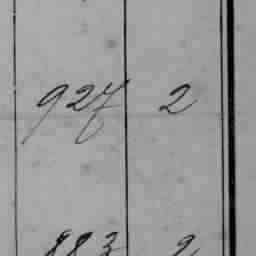 927 2
883 2